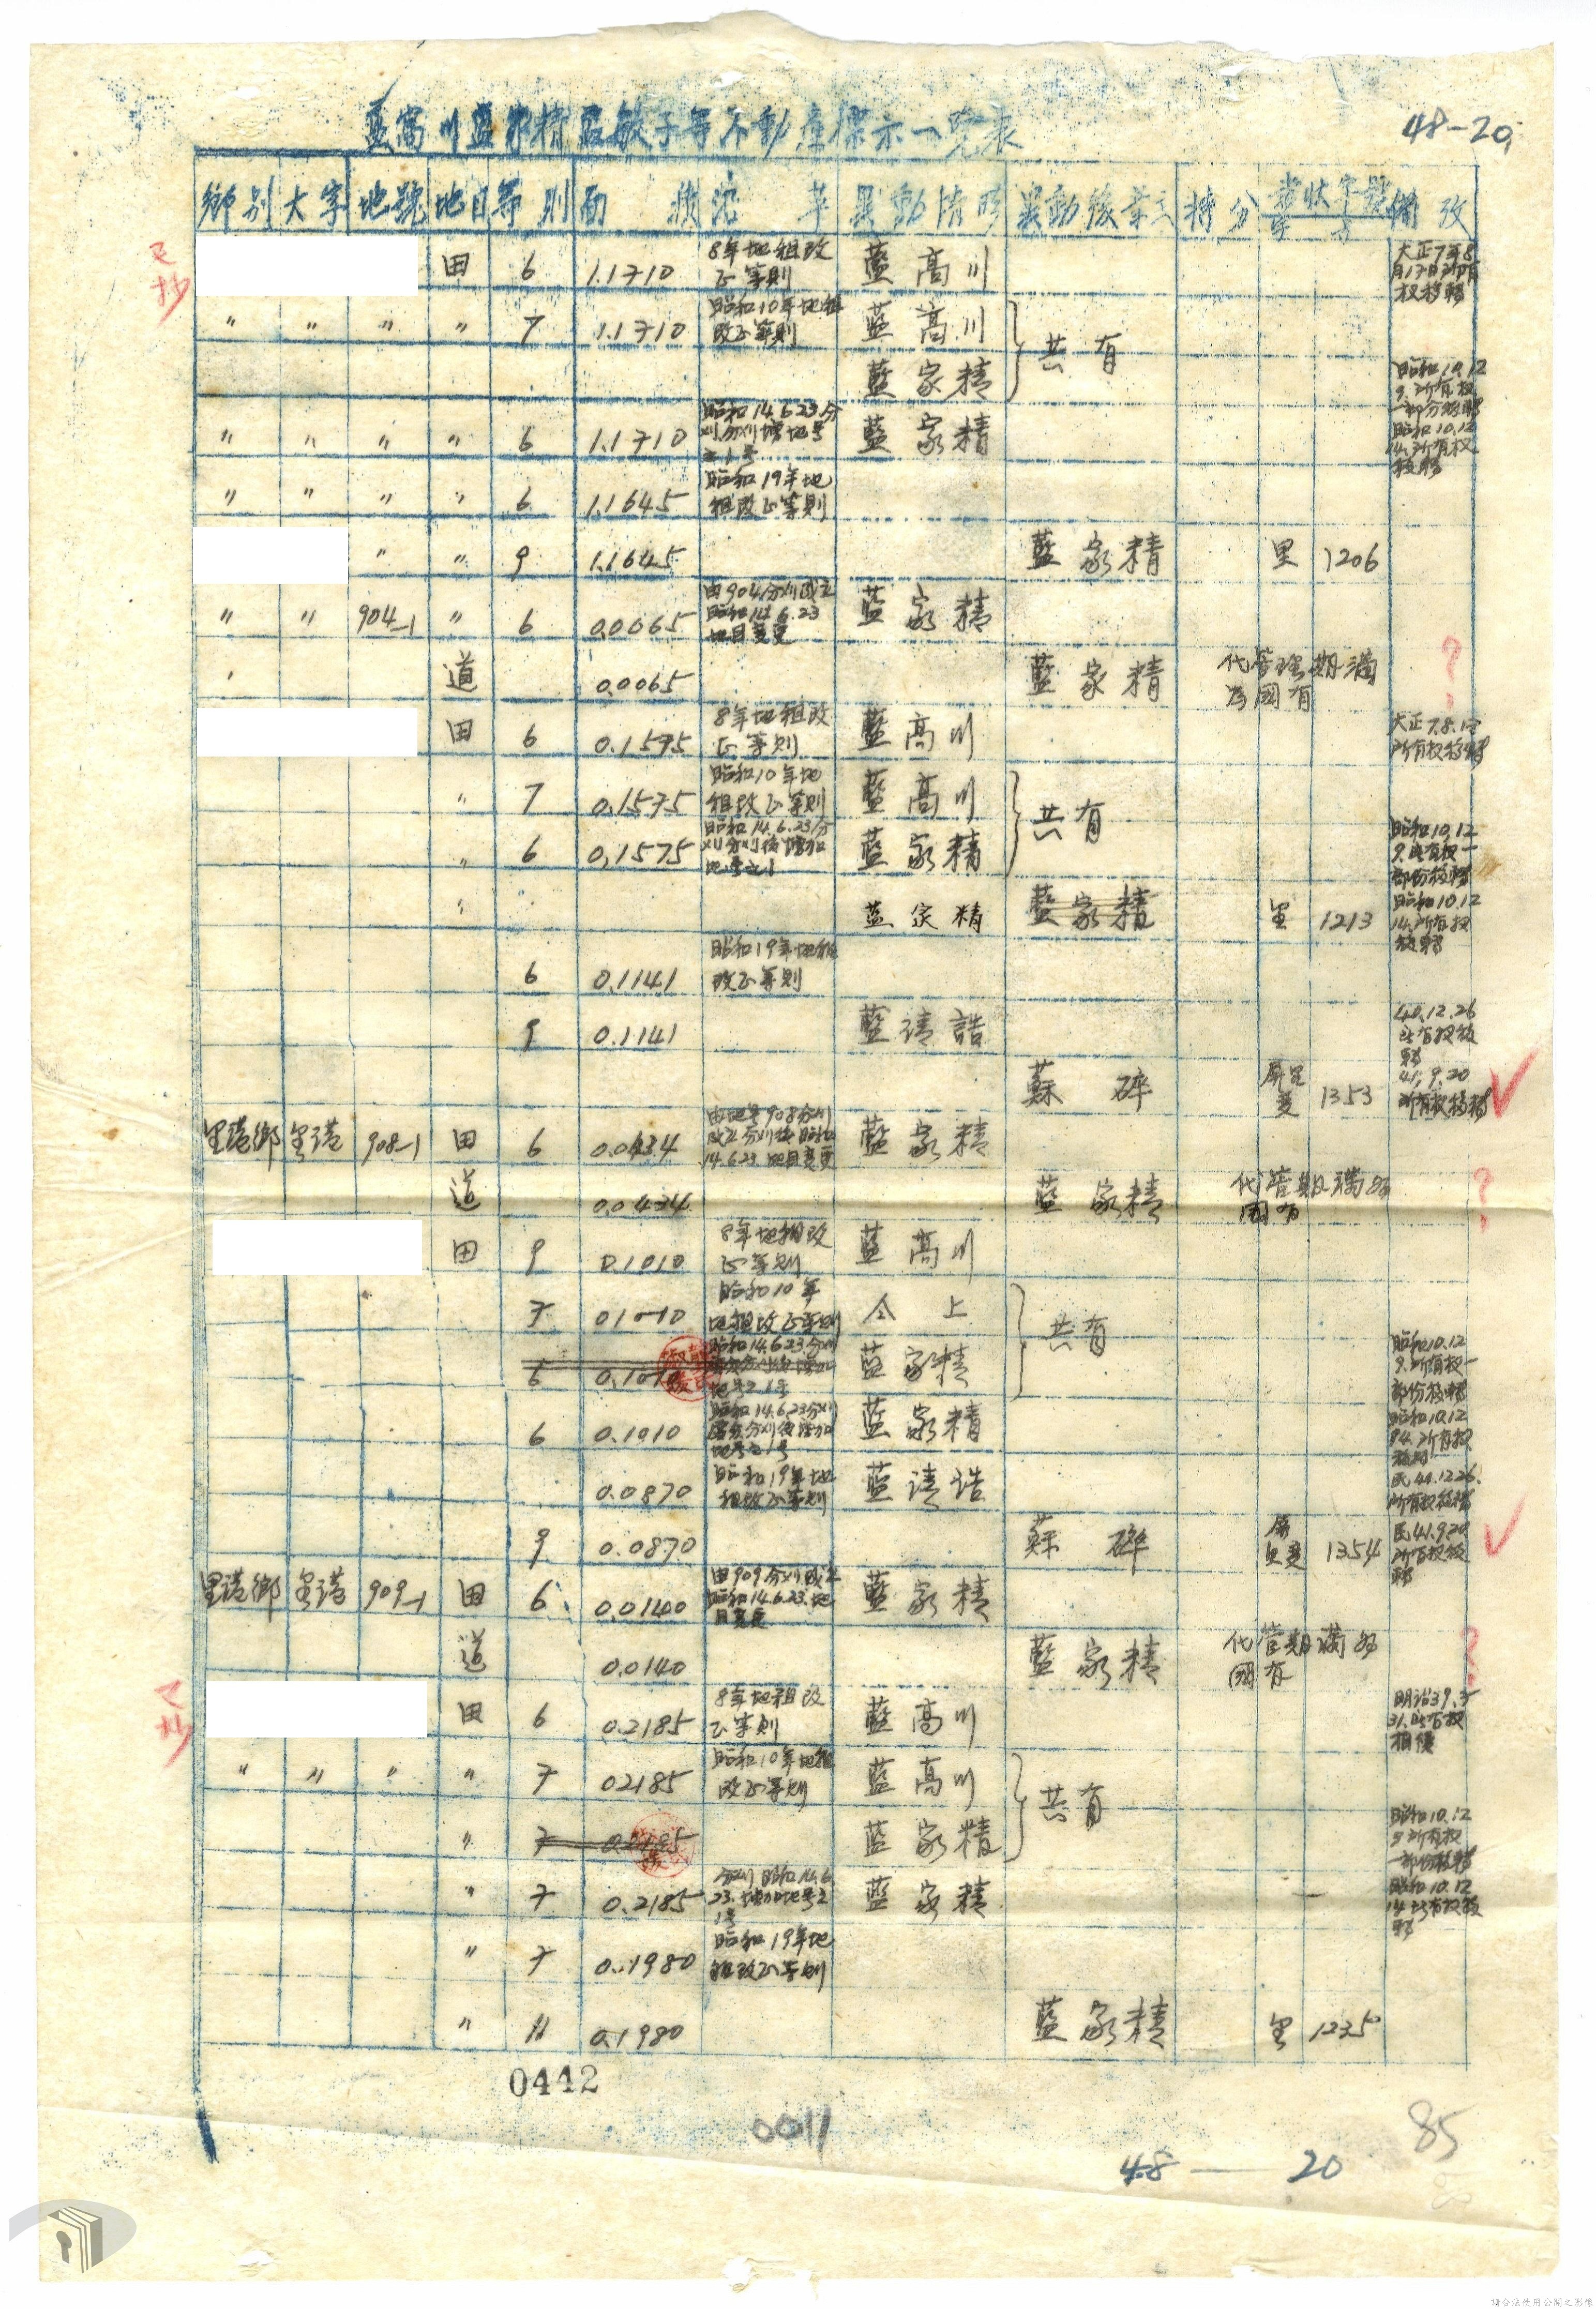 48-20
藍高川藍家精藍敏子等不動產標示一覽表
鄉別 大字 地號 地目 等則 面積 沿革 異動情形 異動後業主 持分 書狀字號 備攷
又抄
田 6 1.1710 8年地租改正等則 藍高川 大正7年8月17日所有权移轉
〃 〃 〃 〃 7 1.1710 昭和10年地租改正等則 藍高川 共有
藍家精 昭和10.12.9.所有权一部分移轉
〃 〃 〃 〃 6 1.1710 昭和14.6.23分刈分刈增地号之1号 藍家精 昭和10.12.14.所有权移轉
〃 〃 〃 〃 6 1.1645 昭和19年地租改正等則
〃 〃 9 1.1645 藍家精 里 1206
〃 〃 904-1 〃 6 0.0065 由904分刈成立昭和14.6.23地目变更 藍家精
道 0.0065 藍家精 代管理期滿為國有 ?
田 6 0.1595 8年地租改正等則 藍高川 大正7.8.17所有权移轉
〃 7 0.1575 昭和10年地租改正等則 藍高川 共有
〃 6 0.1575 昭和14.6.23分刈分刈後增加地号之1 藍家精 昭和10.12.9.所有权一部份移轉
〃 藍家精 藍家精 里 1213 昭和10.12.14.所有权移轉
6 0.1141 昭和19年地租改正等則
9 0.1141 藍靖誥 40.12.26所有权移轉
蘇碎 1353 41.9.20所有权移轉
里港鄉 里港 908-1 田 6 0.0434 由地号908分刈成立分刈後昭和14.6.23地目变更 藍家精
道 0.0434 藍家精 代管期滿為國有 ?
田 9 0.1010 8年地租改正等則 藍高川
7 0.1010 昭和10年地租改正等則 仝上 共有
6 0.1010 昭和14.6.23分刈 地号之1号 藍家精 昭和10.12.9.所有权一部份移轉
6 0.1010 昭和14.6.23分刈 分刈後增加地号之1号 藍家精 昭和10.12
0.0870 昭和19年地租改正等則 藍靖誥 所有权移轉
9 0.0870 蘇碎 1354 民41.9.20所有权移轉
里港鄉 里港 909-1 田 6 0.0140 由909分刈成立昭和14.6.23.地目变更 藍家精
道 0.0140 藍家精 代管期滿為國有 ?
又抄
田 6 0.2185 8年地租改正等則 藍高川 明治39.5.31.所有权相續
〃 〃 〃 〃 7 0.2185 昭和10年地租改正等則 藍高川 共有
〃 7 0.2185 藍家精 昭和10.12.9所有权一部份移轉
〃 7 0.2185 分刈昭和14.6.23.增加地号之1号 藍家精 昭和10.12.14.所有权移轉
〃 7 0.1980 昭和19年地租改正等則
〃 11 0.1980 藍家精 里 1235
0442
0011
85
48—20
請合法使用公開之影像